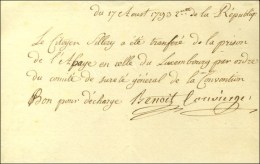 du 17 Aoust 1793 2me de la Républiq
Le Citoyen Sillery a été transferé de la prison
de l'Abaye en celle du Luxembourg par ordre
du comité de sureté général de la Convention
Bon pour décharge Benoit Concierge